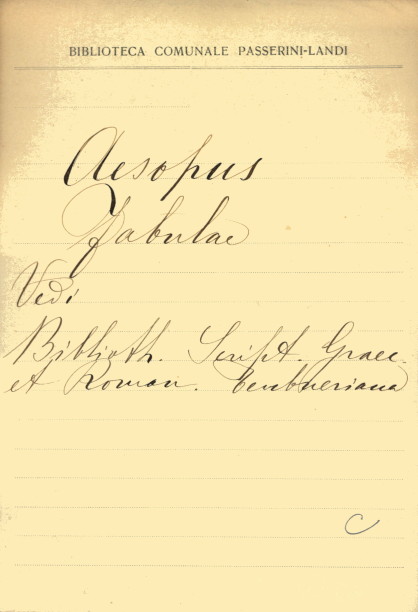 BIBLIOTECA COMUNALE PASSERINI-LANDI
Aesopus
Fabulae
Vedi
Biblioth. Script. Graec.
et Roman. Teubneriana
C